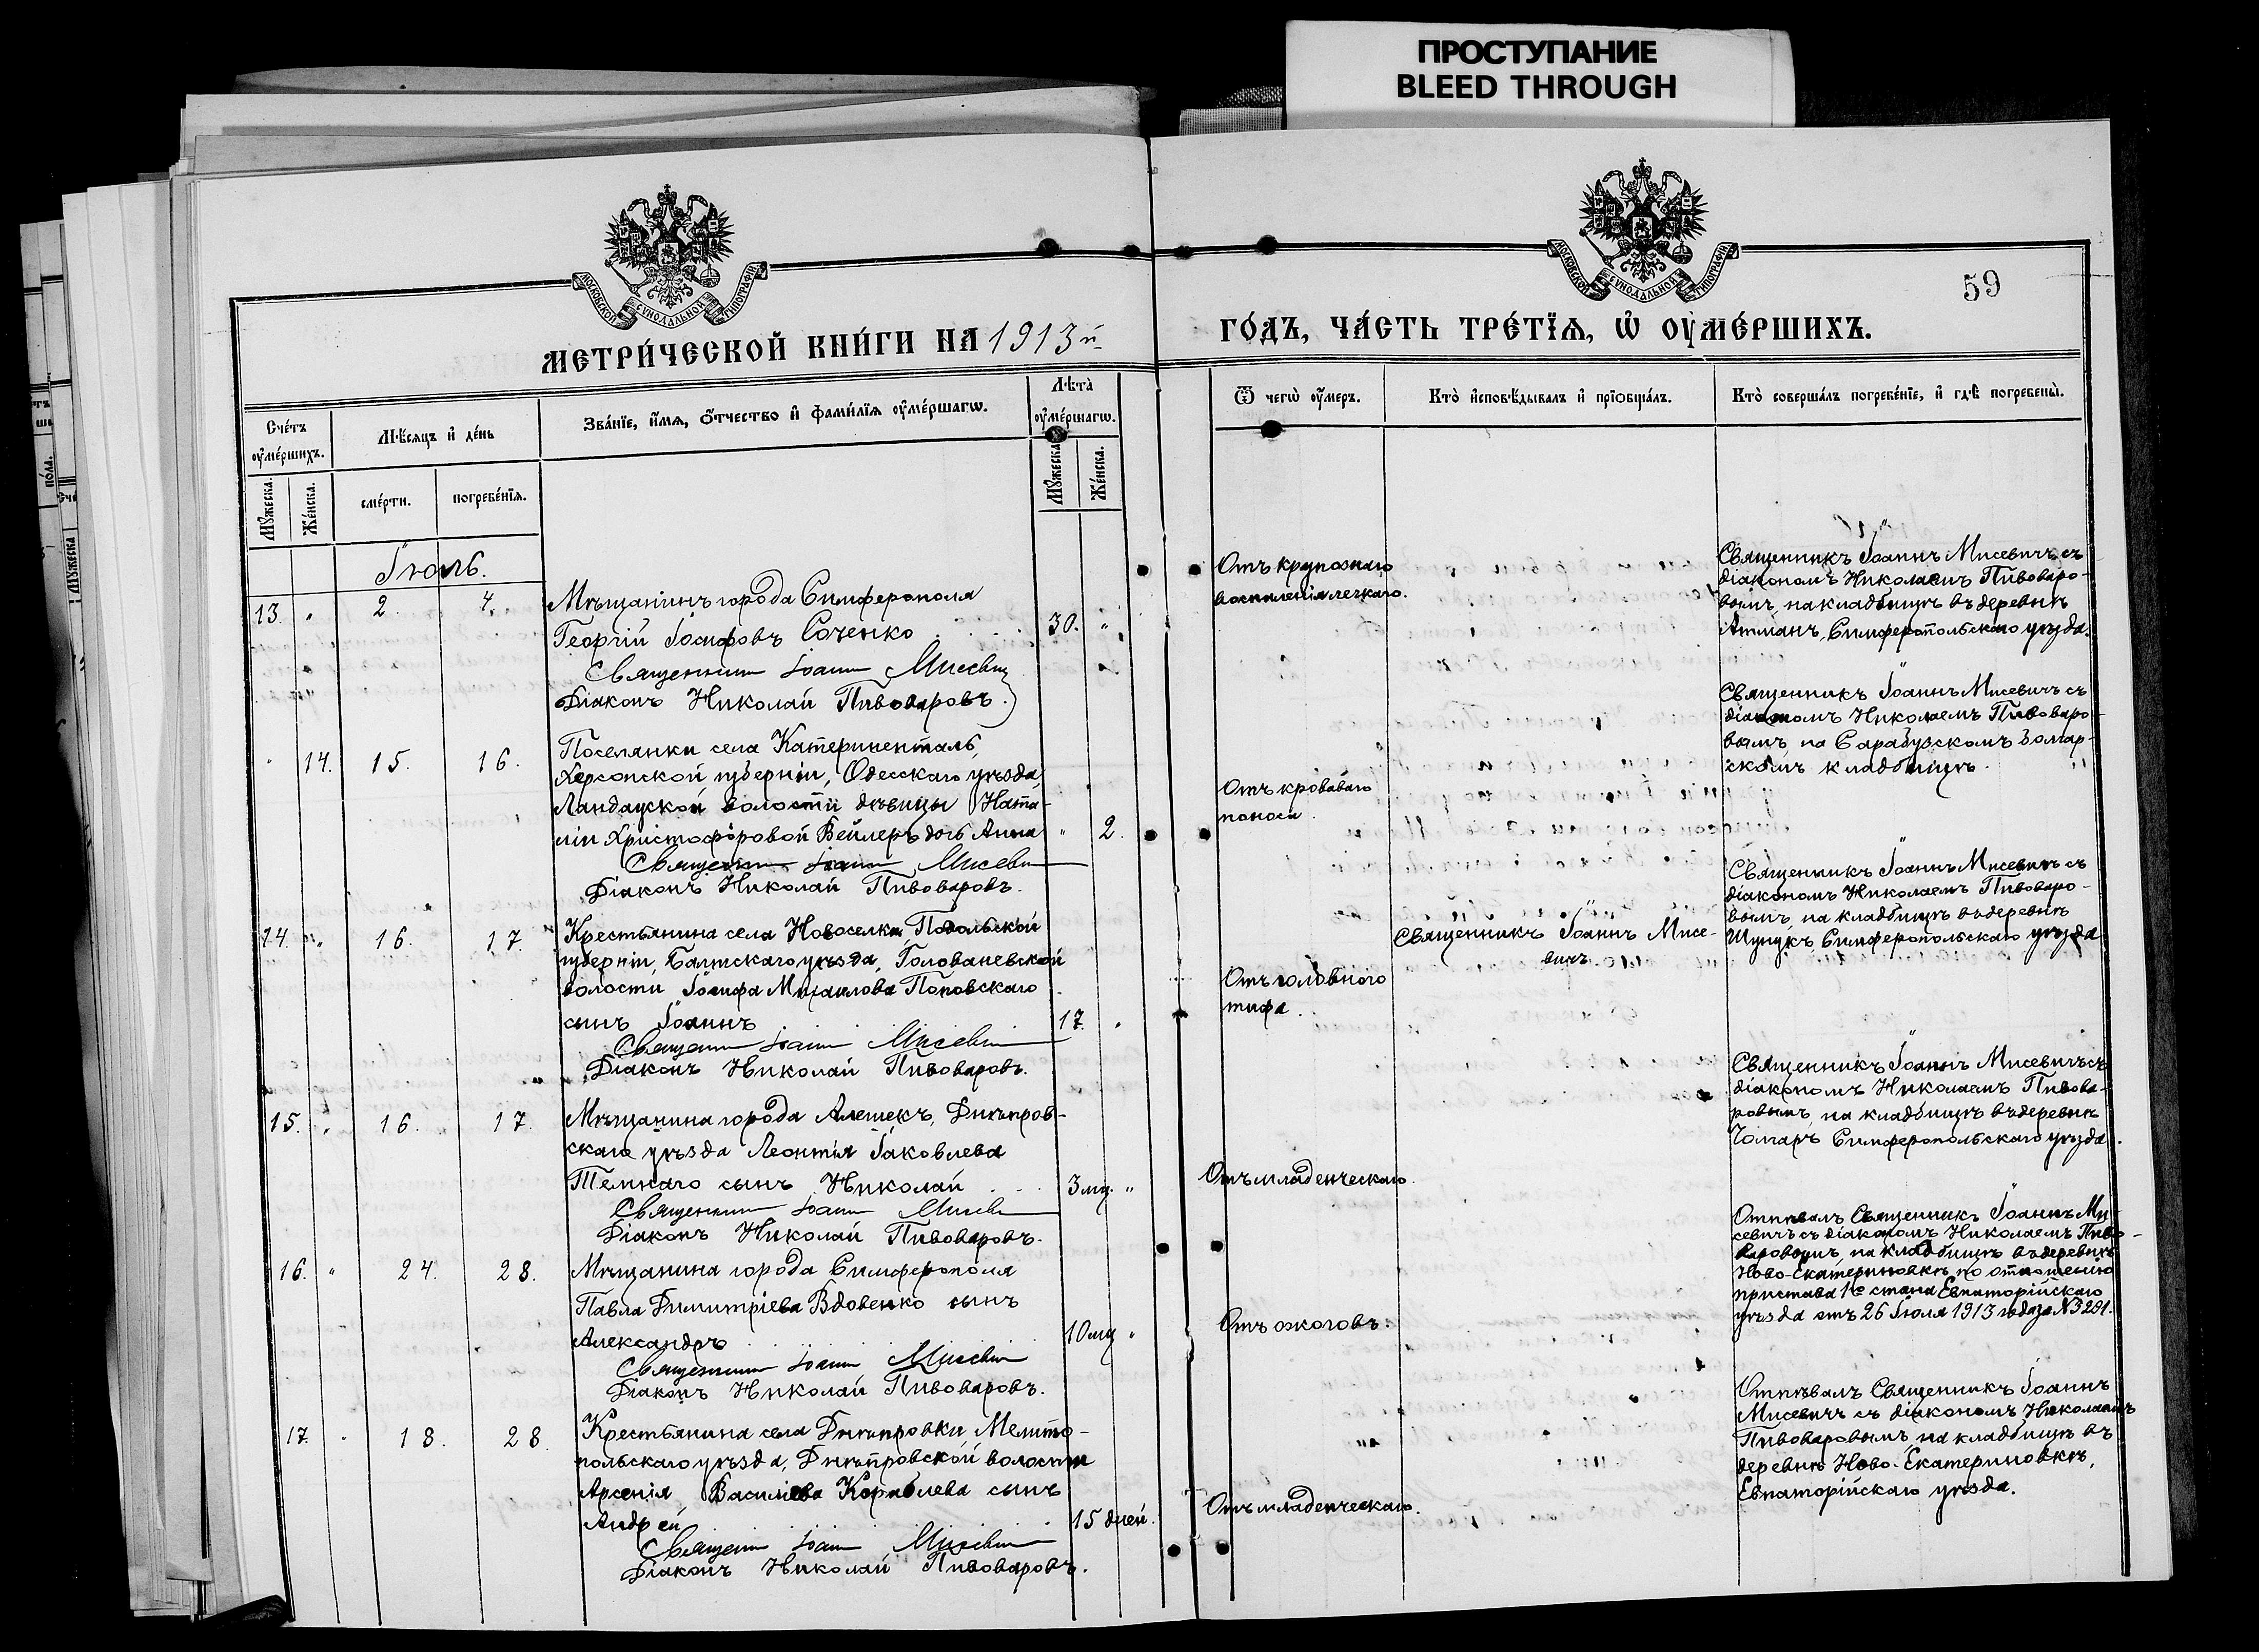 ПРОСТУПАНИЕ
BLEED THROUGH
МОСКОВСКОЙ СѴНОДАЛЬНОЙ ТИПОГРАФІИ
МОСКОВСКОЙ СѴНОДАЛЬНОЙ ТИПОГРАФІИ
59
МЕТРИ́ЧЕСКОЙ КНИ́ГИ НА 1913й
ГО́ДЪ, ЧА́СТЬ ТРЕ́ТЇѦ, Ѡ ОУМЕ́РШИХЪ.
Сче́тъ оумершихъ.
Мѣсяцъ и день
Зва́нїе, и́мѧ, о́тчество и фами́лїѧ оуме́ршагѡ.
Лѣта̀ оуме́ршагѡ.
Ѿ чегѡ̀ оу́меръ.
Кто̀ исповѣ́дывалъ и прїобща́лъ.
Кто̀ соверша́лъ погребе́нїе, и гдѣ̀ погребены̀.
Мꙋжеска.
Же́нска.
сме́рти.
погребе́нїѧ.
Мꙋжеска
Же́нска.
Іюль.
13. " 2. 4.
Мѣщанинъ города Симферополя
Георгій Іосифовъ Соченко 30. "
Священникъ Іоаннъ Мисевичъ
Діаконъ Николай Пивоваровъ.
Отъ крупознаго
воспаленія легкаго.
Священникъ Іоаннъ Мисевичъ съ
діакономъ Николаемъ Пивоваро-
вымъ, на кладбищѣ въ деревнѣ
Атманъ, Симферопольскаго уѣзда.
" 14. 15. 16.
Поселянки села Катериненталь,
Херсонской губерніи, Одесскаго уѣзда,
Ландауской волости дѣвицы Ната-
ліи Христофоровой Вейлеръ дочь Анна " 2.
Священникъ Іоаннъ Мисевичъ
Діаконъ Николай Пивоваровъ.
Отъ кроваваго
поноса.
Священникъ Іоаннъ Мисевичъ съ
діакономъ Николаемъ Пивоваро-
вымъ, на Сарабузскомъ Болгар-
скомъ кладбищѣ.
14. " 16. 17.
Крестьянина села Новоселки, Подольской
губерніи, Балтскаго уѣзда, Голованевской
волости Іосифа Михаилова Поповскаго
сынъ Іоаннъ 17. "
Священникъ Іоаннъ Мисевичъ
Діаконъ Николай Пивоваровъ.
Отъ головного
тифа.
Священникъ Іоаннъ Мисе-
вичъ.
Священникъ Іоаннъ Мисевичъ съ
діакономъ Николаемъ Пивоваро-
вымъ, на кладбищѣ въ деревнѣ
Шунукъ, Симферопольскаго уѣзда.
15. " 16. 17.
Мѣщанина города Алешекъ, Днѣпров-
скаго уѣзда Леонтія Іаковлева
Темнаго сынъ Николай 3 мц. "
Священникъ Іоаннъ Мисевичъ
Діаконъ Николай Пивоваровъ.
Отъ младенческаго.
Священникъ Іоаннъ Мисевичъ съ
діакономъ Николаемъ Пивова-
ровымъ, на кладбищѣ въ деревнѣ
Чонгаръ Симферопольскаго уѣзда.
16. " 24. 28.
Мѣщанина города Симферополя
Павла Димитріева Вдовенко сынъ
Александръ 10 мц "
Священникъ Іоаннъ Мисевичъ
Діаконъ Николай Пивоваровъ.
Отъ ожоговъ.
Отпѣвалъ Священникъ Іоаннъ Ми-
севичъ съ діакономъ Николаемъ Пиво-
варовымъ, на кладбищѣ въ деревнѣ
Ново-Екатериновкѣ, по отношенію
пристава 1го стана Евпаторійскаго
уѣзда отъ 26 Іюля 1913 года за №3281.
17. " 18. 28.
Крестьянина села Днѣпровки, Мелито-
польскаго уѣзда, Днѣпровской волости
Арсенія Василіева Кораблева сынъ
Андрей 15 дней.
Священникъ Іоаннъ Мисевичъ
Діаконъ Николай Пивоваровъ.
Отъ младенческаго.
Отпѣвалъ Священникъ Іоаннъ
Мисевичъ съ діакономъ Николаемъ
Пивоваровымъ на кладбищѣ въ
деревнѣ Ново-Екатериновкѣ,
Евпаторійскаго уѣзда.